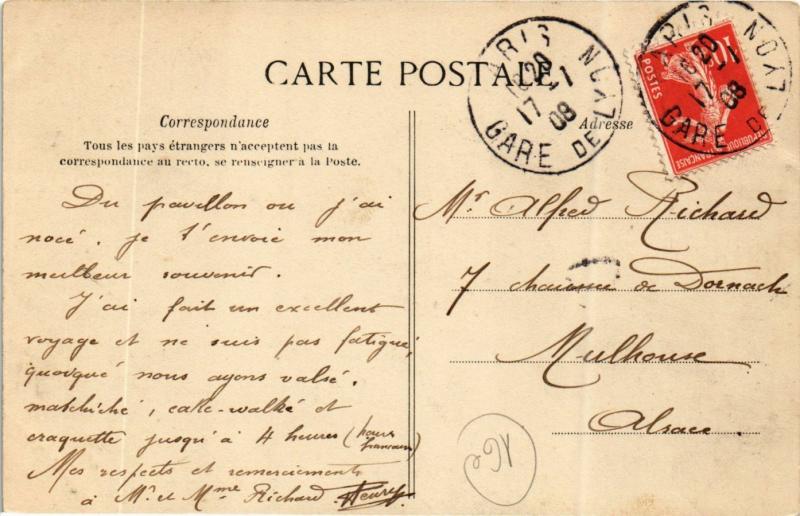 CARTE POSTALE
Correspondance
Tous les pays étrangers n'acceptent pas la
correspondance au recto, se renseigner à la Poste.
Du pavillon ou j'ai
nocé. je t'envoie mon
meilleur souvenir.
J'ai fait un excellent
voyage et ne suis pas fatigué,
quoique nous ayons valsé.
matchiché, cake-walké et
craquette jusqu'à 4 heures (heure
française)
Mes respects et remerciements
à Mr et Mme Richard. Henry
PARIS GARE DE LYON
18 20
17 - 1
08
Adresse
POSTES
10
REPUBLIQUE FRANÇAISE
PARIS GARE DE LYON
18 20
17 - 1
08
Mr Alfred Richard
7 chaussée de Dornach
Mulhouse
Alsace.